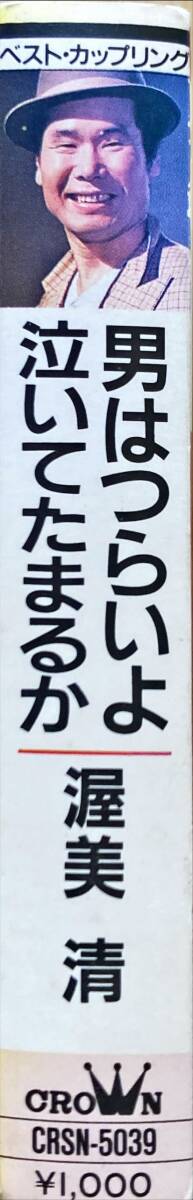 ベスト・カップリング
男はつらいよ
泣いてたまるか
渥美 清
CROWN
CRSN-5039
¥1,000